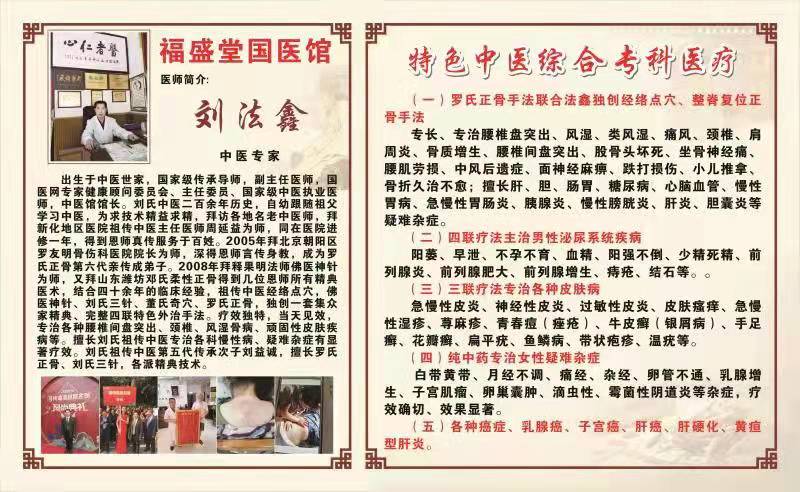 心仁者醫
福盛堂国医馆
医师简介:
刘法鑫
中医专家
出生于中医世家，国家级传承导师，副主任医师，国
医网专家健康顾问委员会、主任委员、国家级中医执业医
师，中医馆馆长。刘氏中医二百余年历史，自幼跟随祖父
学习中医，为求技术精益求精，拜访各地名老中医师，拜
新化地区医院祖传中医主任医师周延益为师，同在医院进
修一年，得到恩师真传服务于百姓。2005年拜北京朝阳区
罗友明骨伤科医院院长为师，深得恩师言传身教，成为罗
氏正骨第六代亲传成弟子。2008年拜释果明法师佛医神针
为师，又拜山东潍坊邓氏柔性正骨得到几位恩师所有精典
医术，结合四十余年的临床经验，祖传中医经络点穴，佛
医神针、刘氏三针、董氏奇穴、罗氏正骨，独创一套集众
家精典、完整四联特色外治手法。疗效独特，当天见效，
专治各种腰椎间盘突出、颈椎、风湿骨病、顽固性皮肤疾
病等。擅长刘氏祖传中医专治各科慢性病、疑难杂症有显
著疗效。刘氏祖传中医第五代传承次子刘益诚，擅长罗氏
正骨、刘氏三针，各派精典技术。
特色中医综合专科医疗
（一）罗氏正骨手法联合法鑫独创经络点穴、整脊复位正
骨手法
专长、专治腰椎盘突出、风湿、类风湿、痛风、颈椎、肩
周炎、骨质增生、腰椎间盘突出、股骨头坏死、坐骨神经痛、
腰肌劳损、中风后遗症、面神经麻痹、跌打损伤、小儿推拿、
骨折久治不愈；擅长肝、胆、肠胃、糖尿病、心脑血管、慢性
胃病、急慢性胃肠炎、胰腺炎、慢性膀胱炎、肝炎、胆囊炎等
疑难杂症。
（二）四联疗法主治男性泌尿系统疾病
阳萎、早泄、不孕不育、血精、阳强不倒、少精死精、前
列腺炎、前列腺肥大、前列腺增生、痔疮、结石等。。
（三）三联疗法专治各种皮肤病
急慢性皮炎、神经性皮炎、过敏性皮炎、皮肤瘙痒、急慢
性湿疹、荨麻疹、青春痘（痤疮）、牛皮癣（银屑病）、手足
癣、花瓣癣、扁平疣、鱼鳞病、带状疱疹、温疣等。
（四）纯中药专治女性疑难杂症
白带黄带、月经不调、痛经、杂经、卵管不通、乳腺增
生、子宫肌瘤、卵巢囊肿、滴虫性、霉菌性阴道炎等杂症，疗
效确切、效果显著。
（五）各种癌症、乳腺癌、子宫癌、肝癌、肝硬化、黄疸
型肝炎。